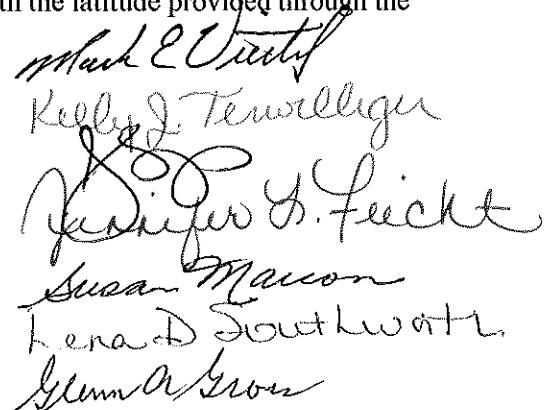 th the latitude provided through the
Mark E
Kelly J. Terwilliger
Jennifer L. Feicht
Susan Marcon
Lena D Southworth
Glenn A Gross